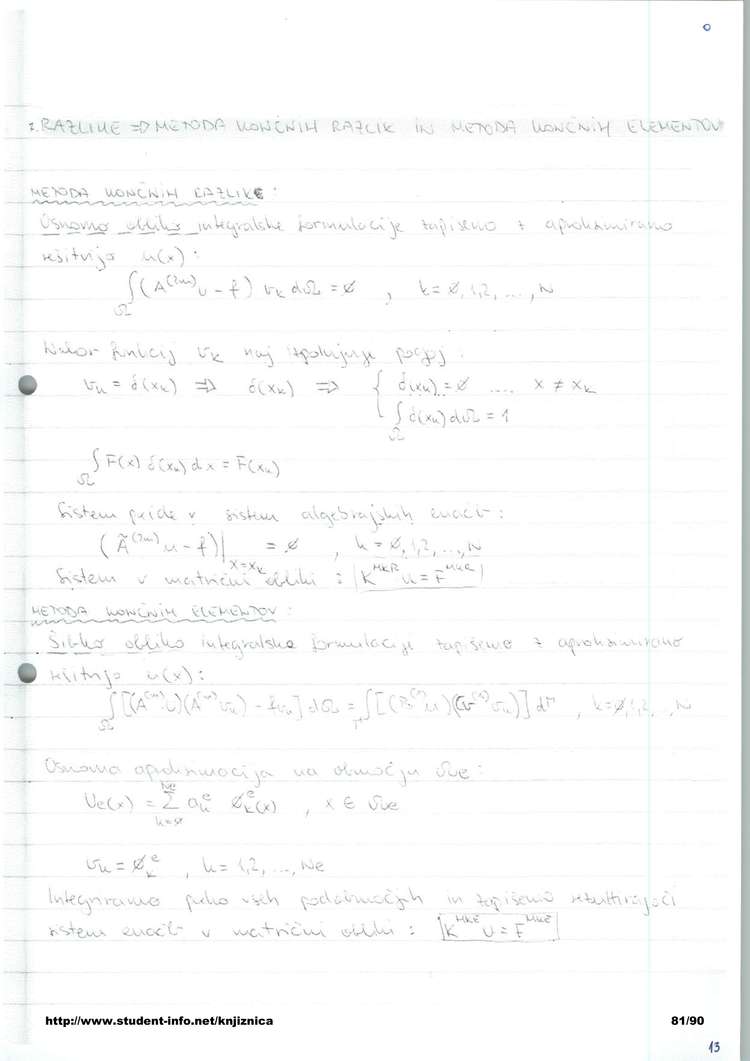 7. RAZLIKE => METODA KONČNIH RAZLIK IN METODA KONČNIH ELEMENTOV
METODA KONČNIH RAZLIKE :
Osnovno obliko integralske formulacije zapišemo z aproksimirano
rešitvijo u(x) :
∫_Ω (A^(2m) u - f) v_k dΩ = ∅ , k = ∅, 1, 2, ..., N
Nabor funkcij v_k naj izpolnjuje pogoj :
v_k = δ(x_k) => δ(x_k) => { δ(x_k) = ∅ .... x ≠ x_k
∫_Ω δ(x_k) dΩ = 1
∫_Ω F(x) δ(x_k) dx = F(x_k)
Sistem preide v sistem algebrajskih enačb :
(Ã^(2m) u - f)|_{x=x_k} = ∅ , k = ∅, 1, 2, ..., N
Sistem v matrični obliki : K^MKR u = F^MKR
METODA KONČNIH ELEMENTOV :
Šibko obliko integralske formulacije zapišemo z aproksimirano
rešitvijo u(x) :
∫_Ω [(A^(m) u)(A^(m) v_k) - f v_k] dΩ = ∫_Γ [(B u)(G v_k)] dΓ , k = ∅, 1, 2, ..., N
Osnovna aproksimacija na območju Ωe :
Ue(x) = Σ_{k=∅}^{Ne} a_k^e ∅_k^e(x) , x ∈ Ωe
v_k = ∅_k^e , k = 1, 2, ..., Ne
Integriramo preko vseh podobmočjih in zapišemo rezultirajoči
sistem enačb v matrični obliki : K^MKE U = F^MKE
http://www.student-info.net/knjiznica 81/90
13